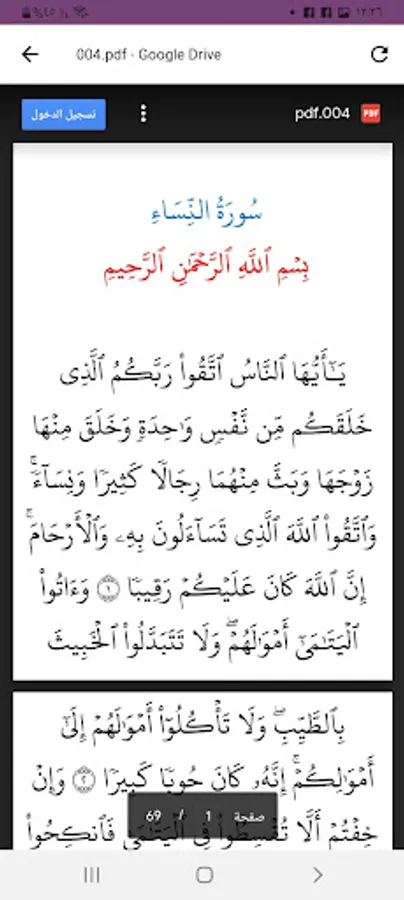 ١٢:٢٦
004.pdf - Google Drive
تسجيل الدخول
pdf.004
PDF
سُورَةُ النِّسَاءِ
بِسْمِ ٱللَّهِ ٱلرَّحْمَٰنِ ٱلرَّحِيمِ
يَـٰٓأَيُّهَا ٱلنَّاسُ ٱتَّقُوا۟ رَبَّكُمُ ٱلَّذِى
خَلَقَكُم مِّن نَّفْسٍ وَٰحِدَةٍ وَخَلَقَ مِنْهَا
زَوْجَهَا وَبَثَّ مِنْهُمَا رِجَالًا كَثِيرًا وَنِسَآءً ۚ
وَٱتَّقُوا۟ ٱللَّهَ ٱلَّذِى تَسَآءَلُونَ بِهِۦ وَٱلْأَرْحَامَ ۚ
إِنَّ ٱللَّهَ كَانَ عَلَيْكُمْ رَقِيبًا ۝١ وَءَاتُوا۟
ٱلْيَتَـٰمَىٰٓ أَمْوَٰلَهُمْ ۖ وَلَا تَتَبَدَّلُوا۟ ٱلْخَبِيثَ
بِٱلطَّيِّبِ ۖ وَلَا تَأْكُلُوٓا۟ أَمْوَٰلَهُمْ إِلَىٰٓ
أَمْوَٰلِكُمْ ۚ إِنَّهُۥ كَانَ حُوبًا كَبِيرًا ۝٢ وَإِنْ
خِفْتُمْ أَلَّا تُقْسِطُوا۟ فِى ٱلْيَتَـٰمَىٰ فَٱنكِحُوا۟
صفحة 1 / 69